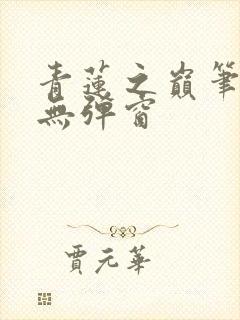 青蓮之巔筆
無彈窗
賈元華